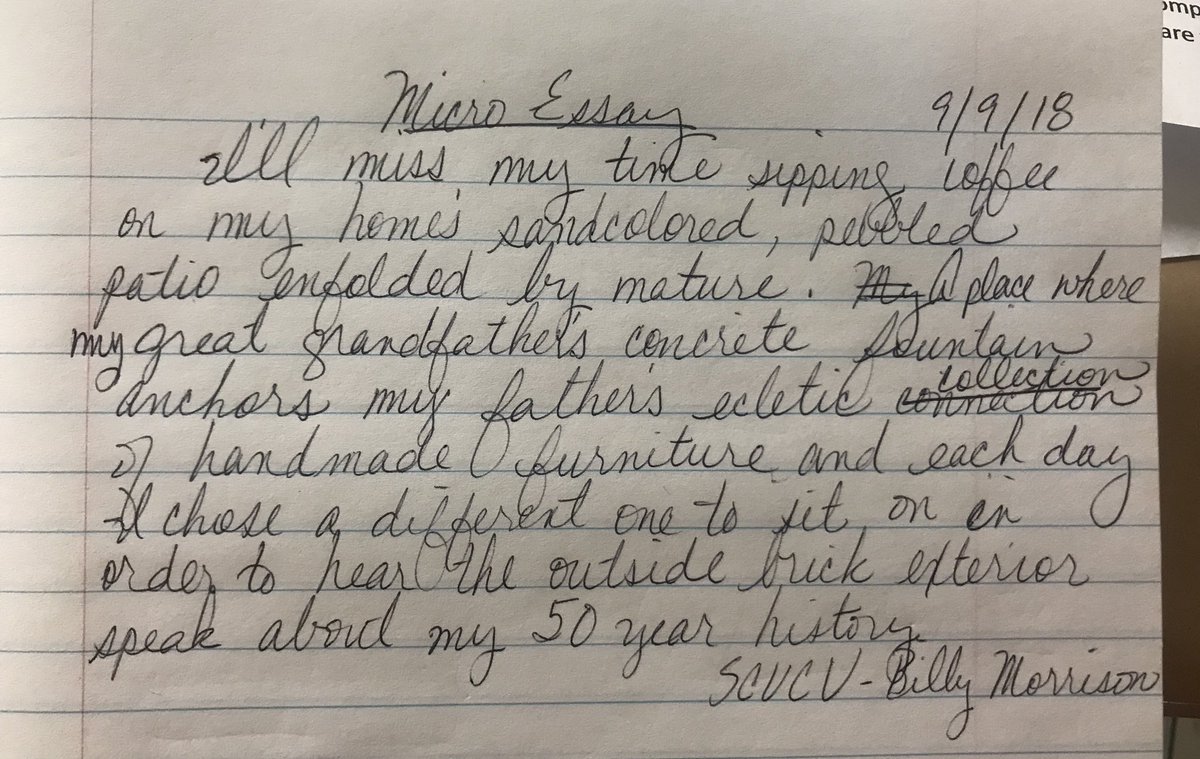 omp
are
Micro Essay 9/9/18
I'll miss my time sipping coffee
on my home's sandcolored, pebbled
patio enfolded by mature. My A place where
my great grandfather's concrete fountain
anchors my father's ecletic connection collection
of handmade furniture and each day
I chose a different one to sit on in
order to hear the outside brick exterior
speak about my 50 year history.
SCVCV - Billy Morrison